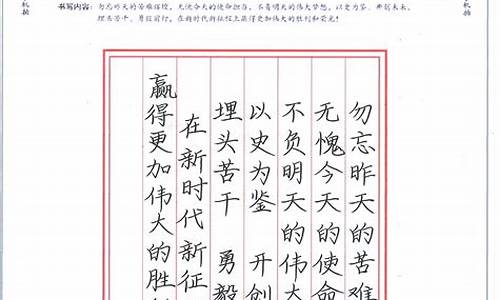 机拍
书写内容：勿忘昨天的苦难辉煌，无愧今天的使命担当，不负明天的伟大梦想，以史为鉴、开创未来，
埋头苦干、勇毅前行，在新时代新征程上赢得更加伟大的胜利和荣光！
机拍
勿忘昨天的苦难
无愧今天的使命
不负明天的伟大
以史为鉴 开创
埋头苦干 勇毅
在新时代新征
赢得更加伟大的胜